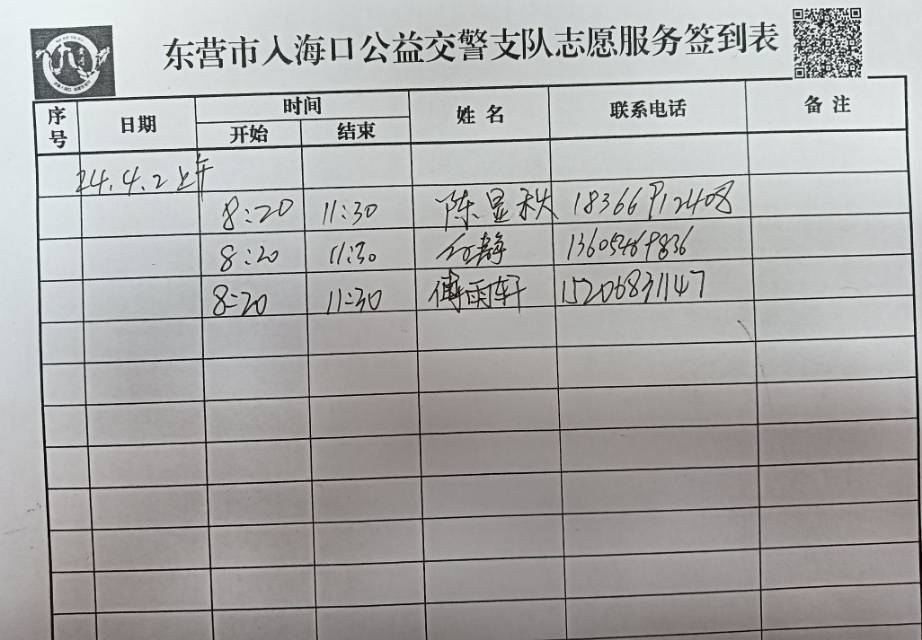 东营市入海口公益交警支队志愿服务签到表
序号 日期 时间 开始 结束 姓名 联系电话 备注
24.4.2上午
8:20 11:30 陈显秩 18366912408
8:20 11:30 静 13605469836
8:20 11:30 傅雨轩 15206831147